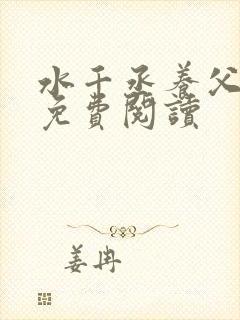 水千丞養父
免費閱讀
姜冉